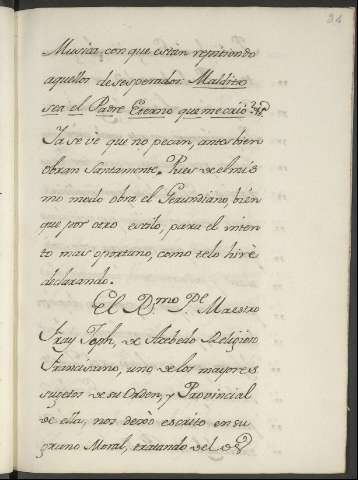 34
Musica, con que estàn repitiendo
aquellos desesperados: Maldito
sea el Padre Eterno que me criò &ª
Ya se vè que no pecan, antes bien
obran Santamente. Pues del mis
mo modo obra el Gerundiano, bien
que por otro estilo, para el inten
to mas oportuno, como telo hirè
declarando.
El Rmo. Pe. Maestro
Fray Joph, de Acebedo Religioso
Franciscano, uno de los mayores
sugetos de su Orden, y Provincial
de ella, nos dexò escrito en su
grano Moral, tratando del